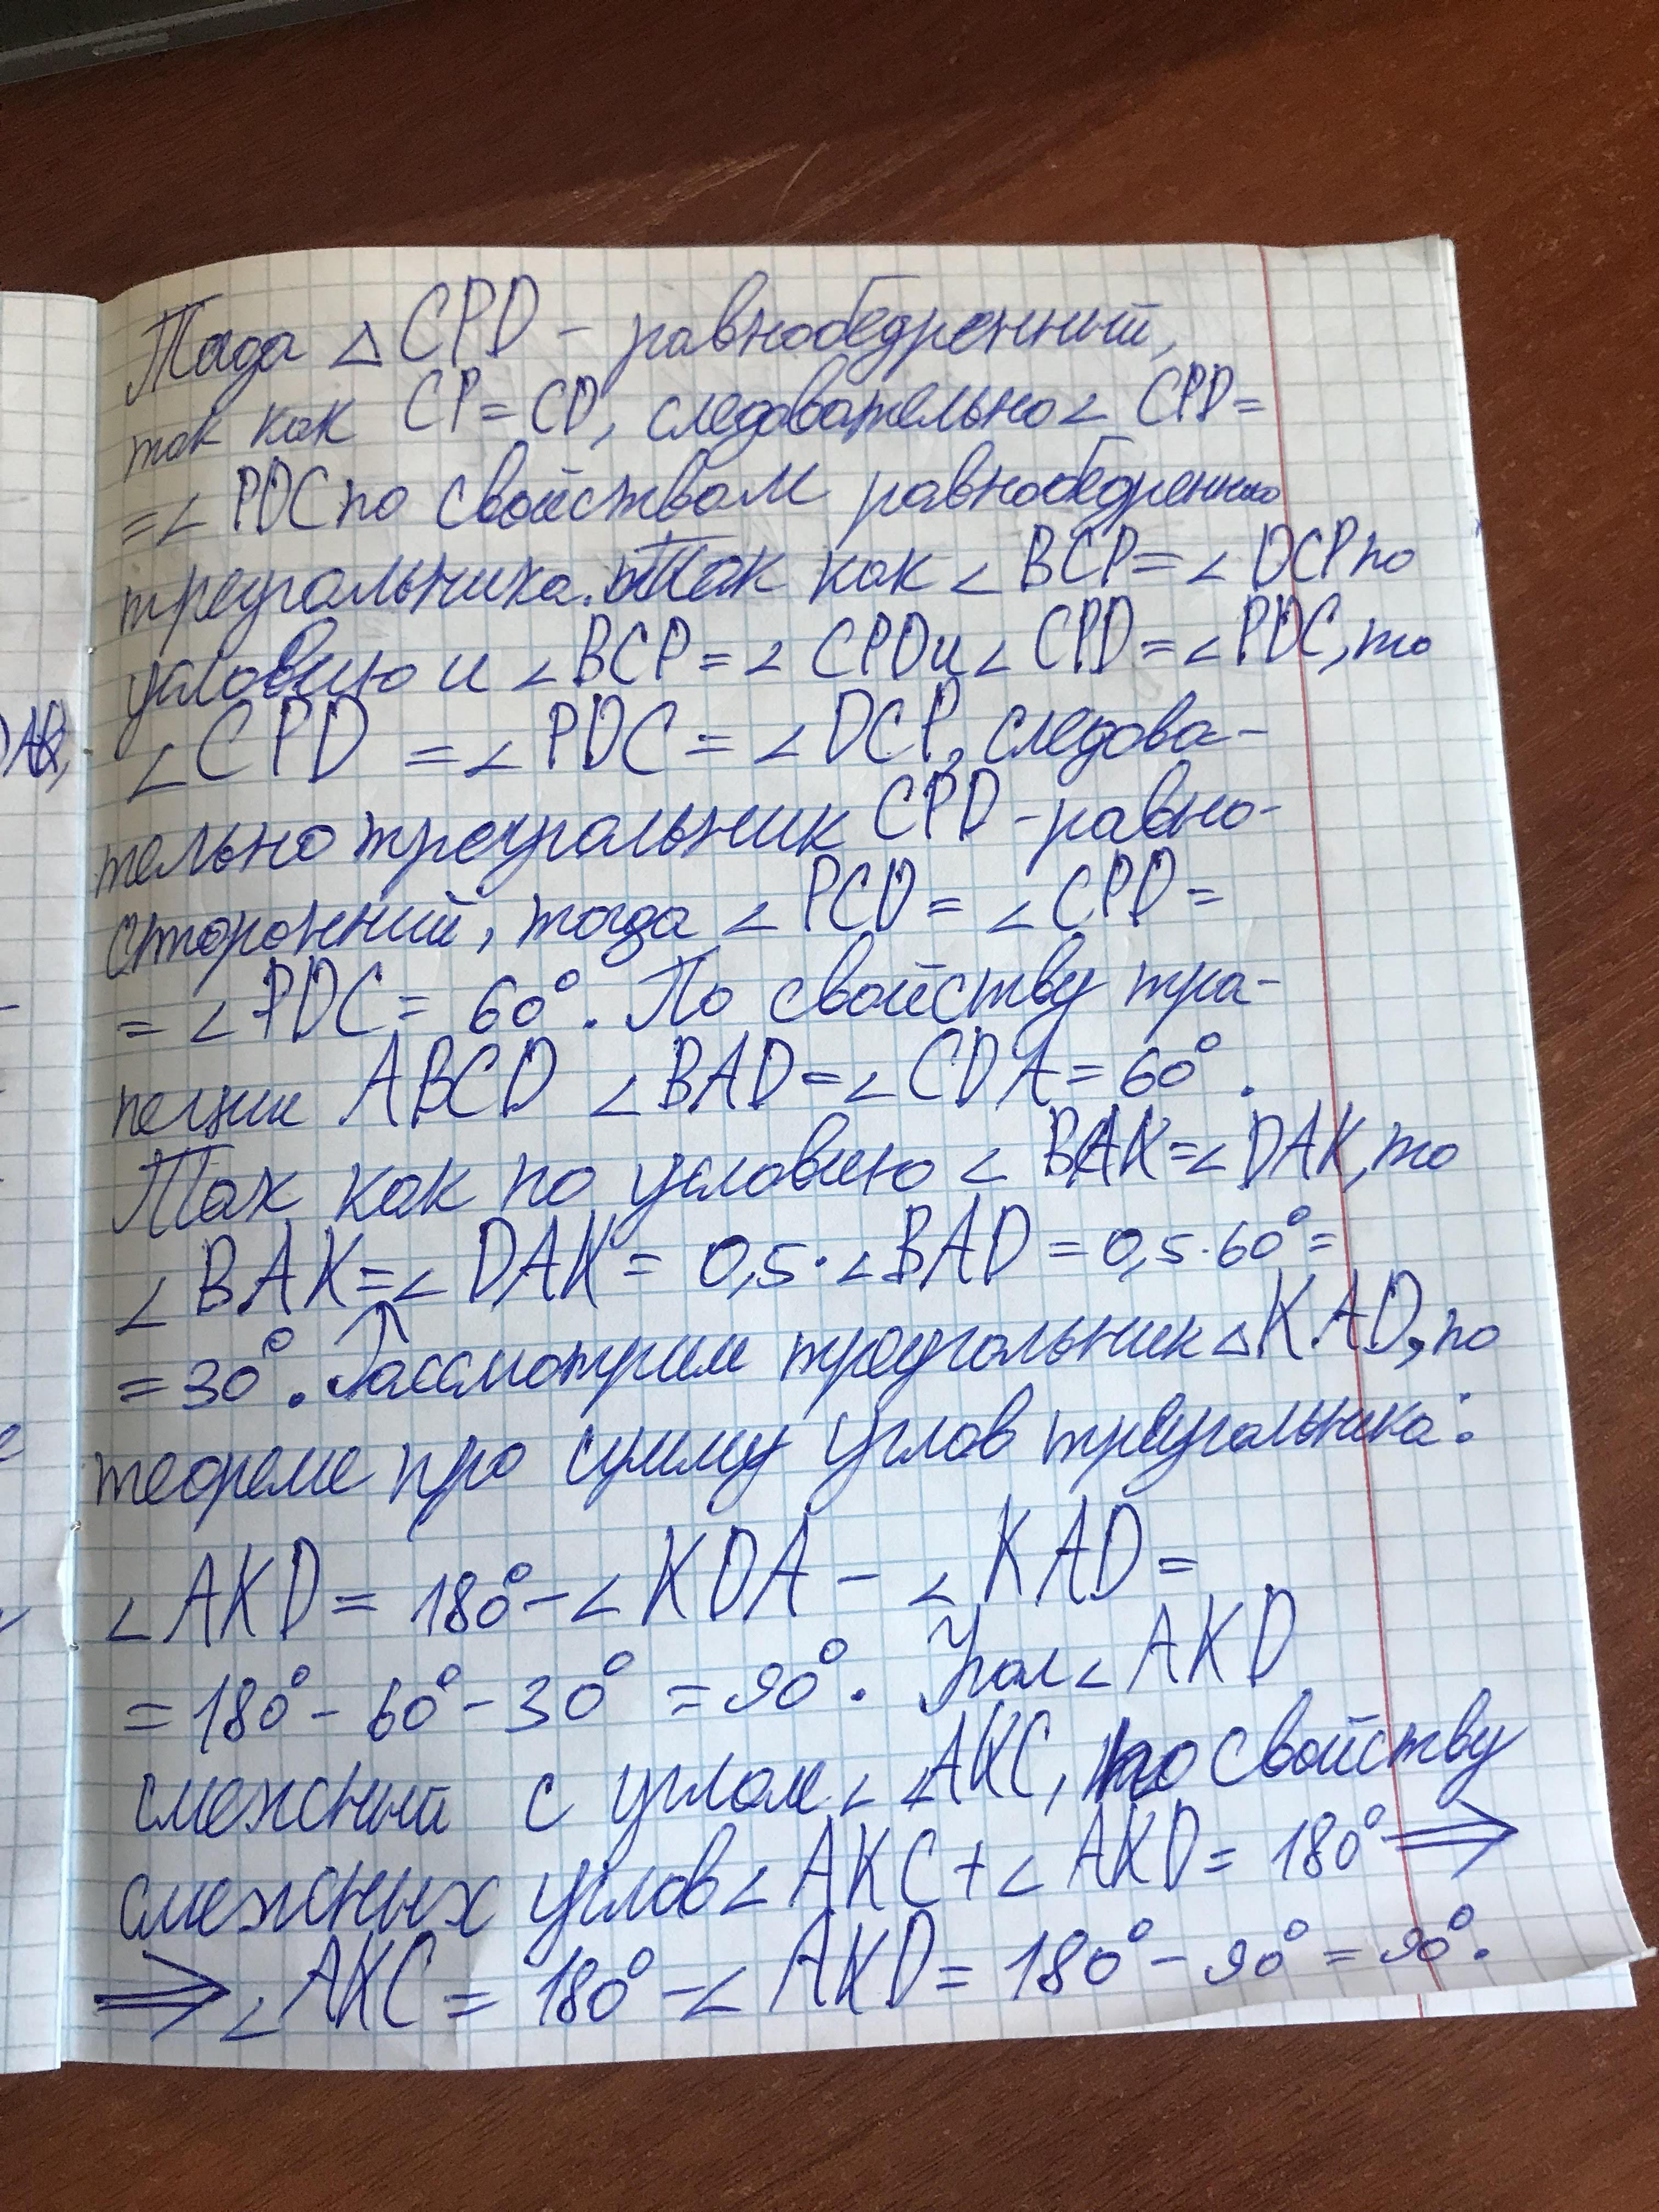 Тогда △ CPD - равнобедренный,
так как CP = CD, следовательно ∠ CPD =
= ∠ PDC по свойствам равнобедренного
треугольника. Так как ∠ BCP = ∠ DCP по
условию и ∠ BCP = ∠ CPD и ∠ CPD = ∠ PDC, то
∠ CPD = ∠ PDC = ∠ DCP, следова-
тельно треугольник CPD - равно-
сторонний, тогда ∠ PCD = ∠ CPD =
= ∠ PDC = 60°. По свойству тра-
пеции ABCD ∠ BAD = ∠ CDA = 60°.
Так как по условию ∠ BAK = ∠ DAK, то
∠ BAK = ∠ DAK = 0,5 · ∠ BAD = 0,5 · 60° =
= 30°. Рассмотрим треугольник △ KAD, по
теореме про сумму углов треугольника:
∠ AKD = 180° - ∠ KDA - ∠ KAD =
= 180° - 60° - 30° = 90°. Угол ∠ AKD
смежный с углом ∠ AKC, по свойству
смежных углов ∠ AKC + ∠ AKD = 180° ⇒
⇒ ∠ AKC = 180° - ∠ AKD = 180° - 90° = 90°.